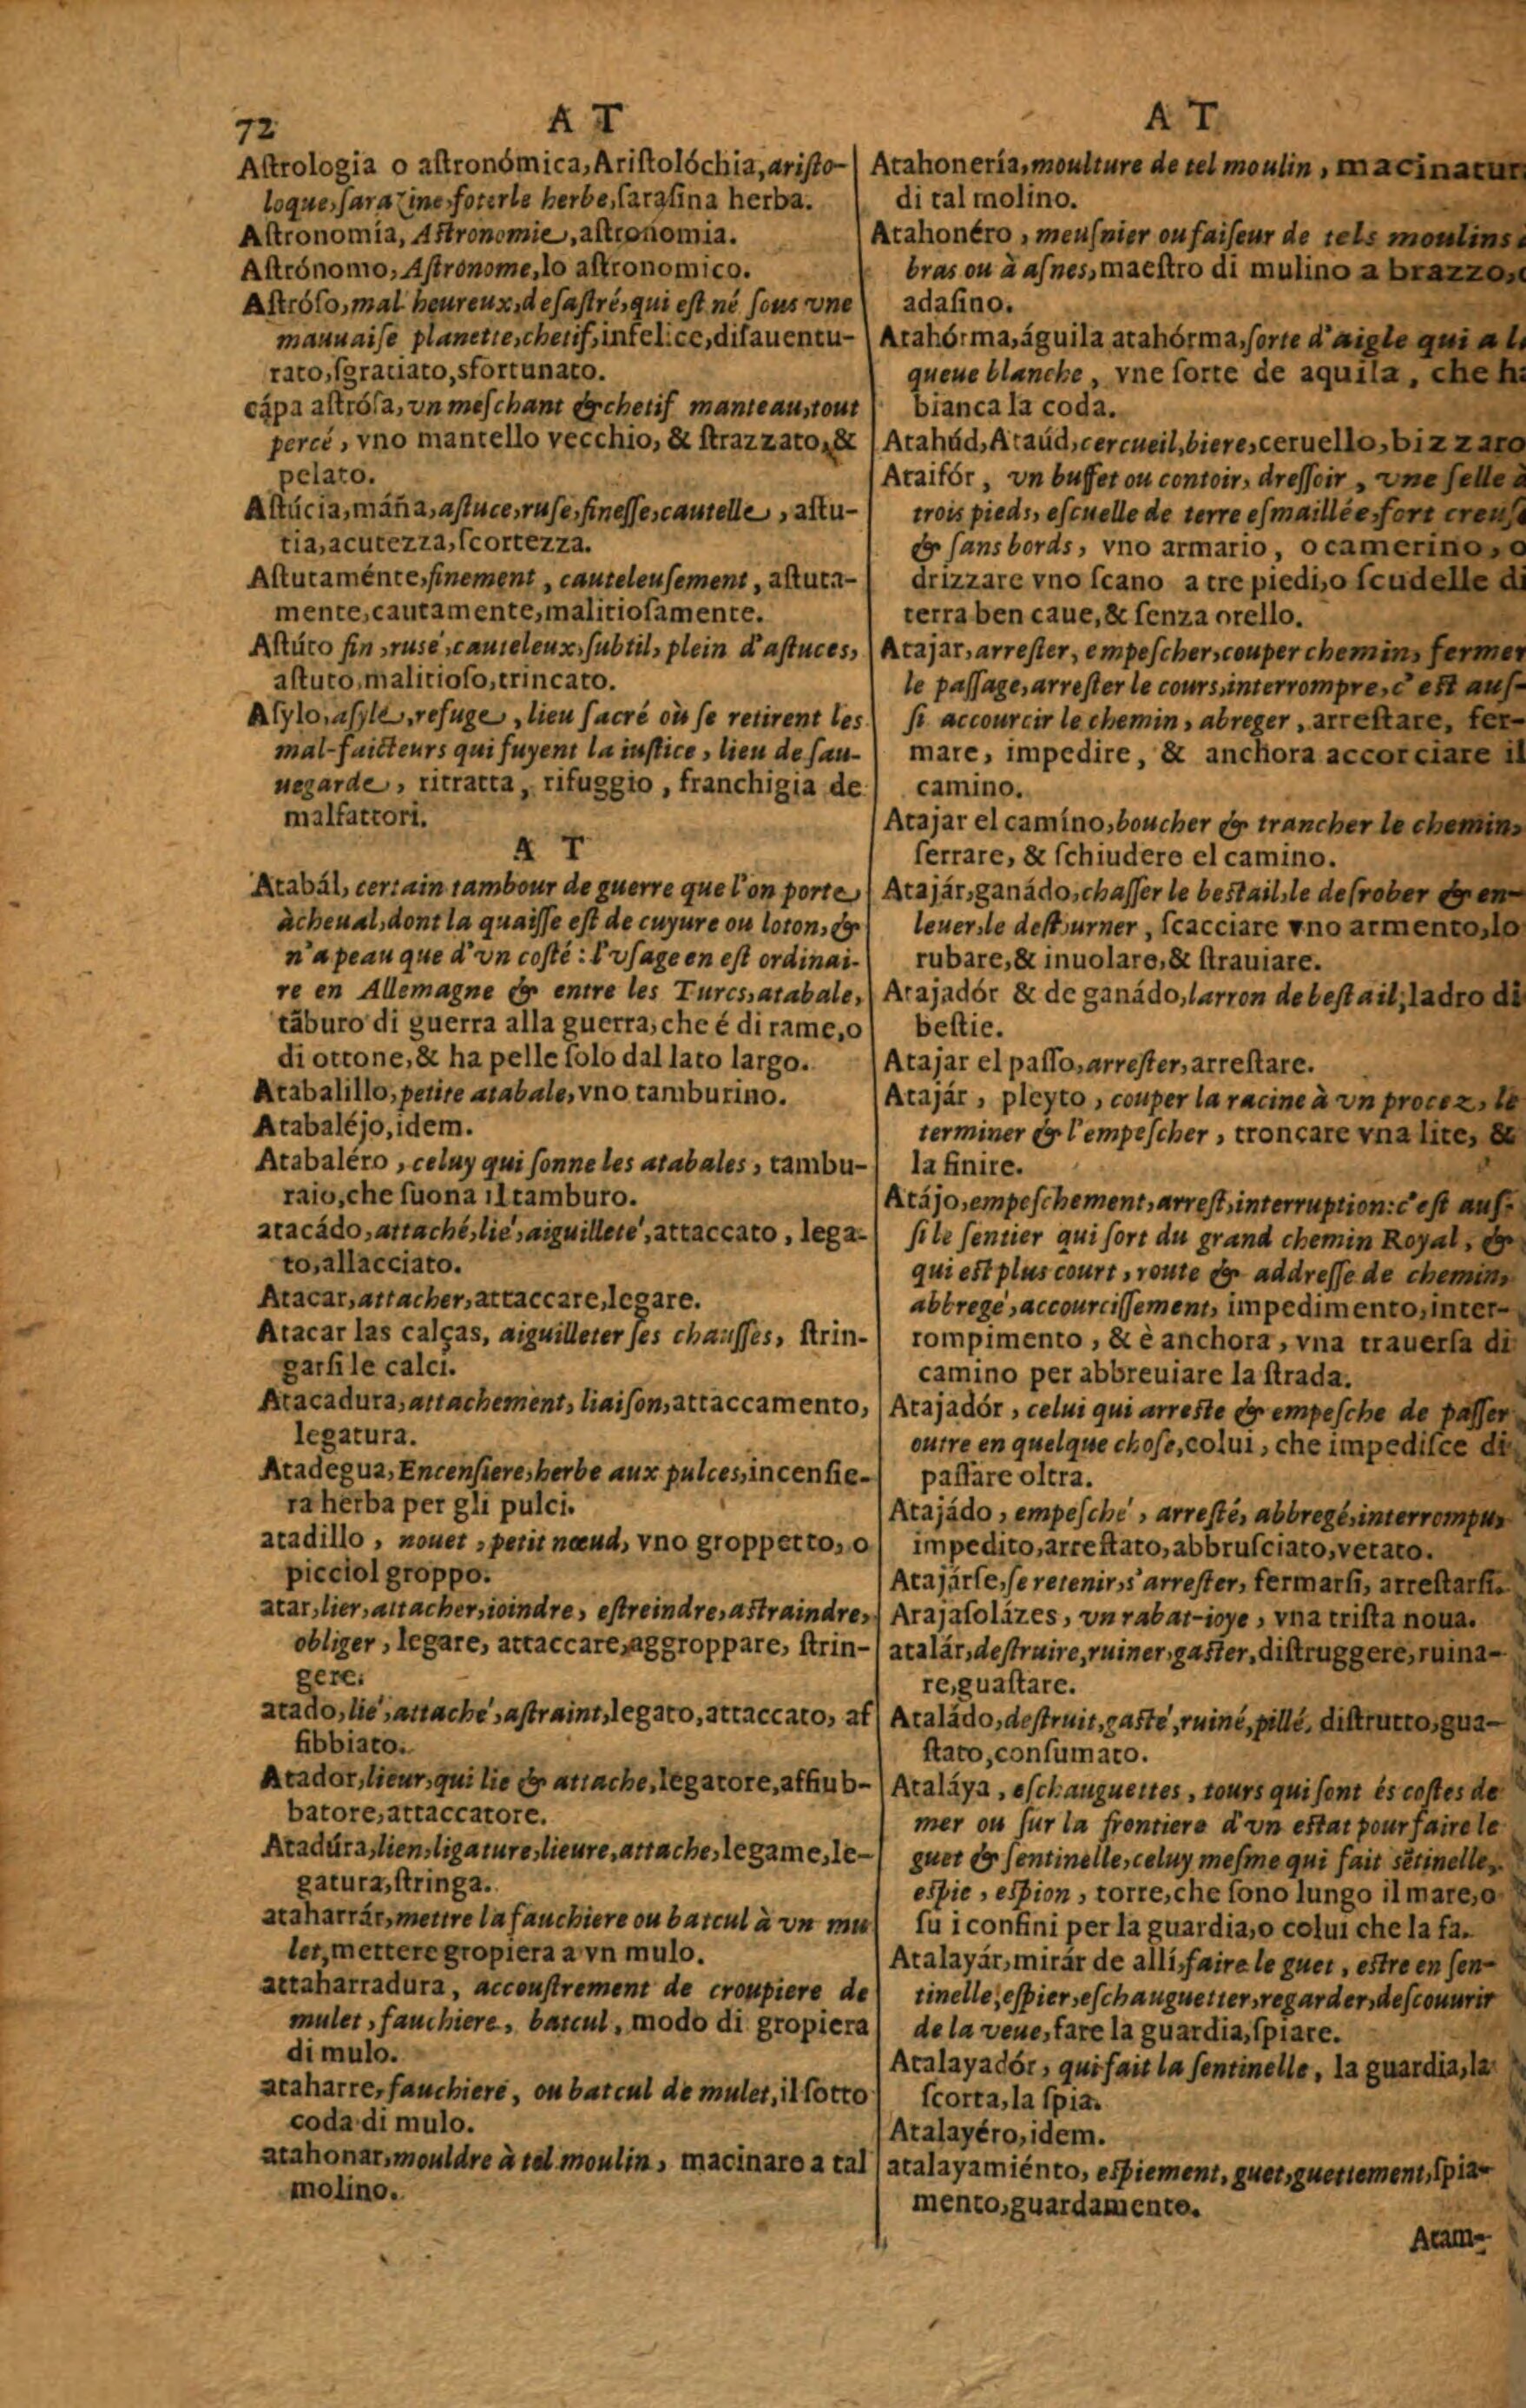 72
A T
Aſtrologia o aſtronómica, Ariſtolóchia, ariſto-
loque, ſarazine, foterle herbe, ſaraſina herba.
Aſtronomía, Aſtronomie, aſtronomia.
Aſtrónomo, Aſtronome, lo aſtronomico.
Aſtróſo, mal heureux, deſaſtré, qui eſt né ſous vne
mauuaiſe planette, chetif, infelice, diſauentu-
rato, ſgratiato, sfortunato.
cápa aſtróſa, vn meſchant & chetif manteau, tout
percé, vno mantello vecchio, & ſtrazzato, &
pelato.
Aſtúcia, máña, aſtuce, ruſe, fineſſe, cautelle, aſtu-
tia, acutezza, ſcortezza.
Aſtutaménte, finement, cauteleuſement, aſtuta-
mente, cautamente, malitioſamente.
Aſtúto fin, rusé, cauteleux, ſubtil, plein d'aſtuces,
aſtuto, malitioſo, trincato.
Aſylo, aſyle, refuge, lieu ſacré où ſe retirent les
mal-faicteurs qui fuyent la iuſtice, lieu de ſau-
uegarde, ritratta, rifuggio, franchigia de
malfattori.
A T
Atabál, certain tambour de guerre que l'on porte
à cheual, dont la quaiſſe eſt de cuyure ou loton, &
n'a peau que d'vn coſté : l'vſage en eſt ordinai-
re en Allemagne & entre les Turcs, atabale,
tãburo di guerra alla guerra, che é di rame, o
di ottone, & ha pelle ſolo dal lato largo.
Atabalillo, petite atabale, vno tamburino.
Atabaléjo, idem.
Atabaléro, celuy qui ſonne les atabales, tambu-
raio, che ſuona il tamburo.
atacádo, attaché, lié, aiguilleté, attaccato, lega-
to, allacciato.
Atacar, attacher, attaccare, legare.
Atacar las calças, aiguilleter ſes chauſſes, ſtrin-
garſi le calci.
Atacadura, attachement, liaiſon, attaccamento,
legatura.
Atadegua, Encenſiere, herbe aux pulces, incenſie-
ra herba per gli pulci.
atadillo, nouet, petit nœud, vno groppetto, o
picciol groppo.
atar, lier, attacher, ioindre, eſtreindre, aſtraindre,
obliger, legare, attaccare, aggroppare, ſtrin-
gere.
atado, lié, attaché, aſtraint, legato, attaccato, af
fibbiato.
Atador, lieur, qui lie & attache, legatore, affiub-
batore, attaccatore.
Atadúra, lien, ligature, lieure, attache, legame, le-
gatura, ſtringa.
ataharrár, mettre la fauchiere ou batcul à vn mu
let, mettere gropiera a vn mulo.
attaharradura, accouſtrement de croupiere de
mulet, fauchiere, batcul, modo di gropiera
di mulo.
ataharre, fauchiere, ou batcul de mulet, il ſotto
coda di mulo.
atahonar, mouldre à tel moulin, macinare a tal
molino.
A T
Atahonería, moulture de tel moulin, macinatur
di tal molino.
Atahonéro, meuſnier ou faiſeur de tels moulins
bras ou à aſnes, maeſtro di mulino a brazzo,
adaſino.
Atahórma, águila atahórma, ſorte d'aigle qui a
queue blanche, vne ſorte de aquila, che
bianca la coda.
Atahúd, Ataúd, cercueil, biere, ceruello, bizzaro
Ataifór, vn buffet ou contoir, dreſſoir, vne ſelle à
trois pieds, eſcuelle de terre eſmaillée, fort
& ſans bords, vno armario, o camerino, o
drizzare vno ſcano a tre piedi, o ſcudelle di
terra ben caue, & ſenza orello.
Atajar, arreſter, empeſcher, couper chemin, fermer
le paſſage, arreſter le cours, interrompre, c'eſt auſ-
ſi accourcir le chemin, abreger, arreſtare, fer-
mare, impedire, & anchora accorciare il
camino.
Atajar el camíno, boucher & trancher le chemin,
ſerrare, & ſchiudere el camino.
Atajár, ganádo, chaſſer le beſtail, le deſrober & en-
leuer, le deſtourner, ſcacciare vno armento, lo
rubare, & inuolare, & ſtrauiare.
Atajadór & de ganádo, larron de beſtail, ladro di
beſtie.
Atajar el paſſo, arreſter, arreſtare.
Atajár, pleyto, couper la racine à vn procez, le
terminer & l'empeſcher, troncare vna lite, &
la finire.
Atájo, empeſchement, arreſt, interruption: c'eſt auſ-
ſi le ſentier qui ſort du grand chemin Royal, &
qui eſt plus court, route & addreſſe de chemin,
abbregé, accourciſſement, impedimento, inter-
rompimento, & è anchora, vna trauerſa di
camino per abbreuiare la ſtrada.
Atajadór, celui qui arreſte & empeſche de paſſer
outre en quelque choſe, colui, che impediſce di
paſſare oltra.
Atajádo, empeſché, arreſté, abbregé, interrompu,
impedito, arreſtato, abbruſciato, vetato.
Atajárſe, ſe retenir, s'arreſter, fermarſi, arreſtarſi.
Arajaſolázes, vn rabat-ioye, vna triſta noua.
atalár, deſtruire, ruiner, gaſter, diſtruggere, ruina-
re, guaſtare.
Ataládo, deſtruit, gaſté, ruiné, pillé, diſtrutto, gua-
ſtato, conſumato.
Ataláya, eſchauguettes, tours qui ſont és coſtes de
mer ou ſur la frontiere d'vn eſtat pour faire le
guet & ſentinelle, celuy meſme qui fait sẽtinelle,
eſpie, eſpion, torre, che ſono lungo il mare, o
ſu i confini per la guardia, o colui che la fa.
Atalayár, mirár de allí, faire le guet, eſtre en ſen-
tinelle, eſpier, eſchauguetter, regarder, deſcouurir
de la veue, fare la guardia, ſpiare.
Atalayadór, qui fait la ſentinelle, la guardia, la
ſcorta, la ſpia.
Atalayéro, idem.
atalayamiénto, eſpiement, guet, guettement, ſpia-
mento, guardamento.
Atam-